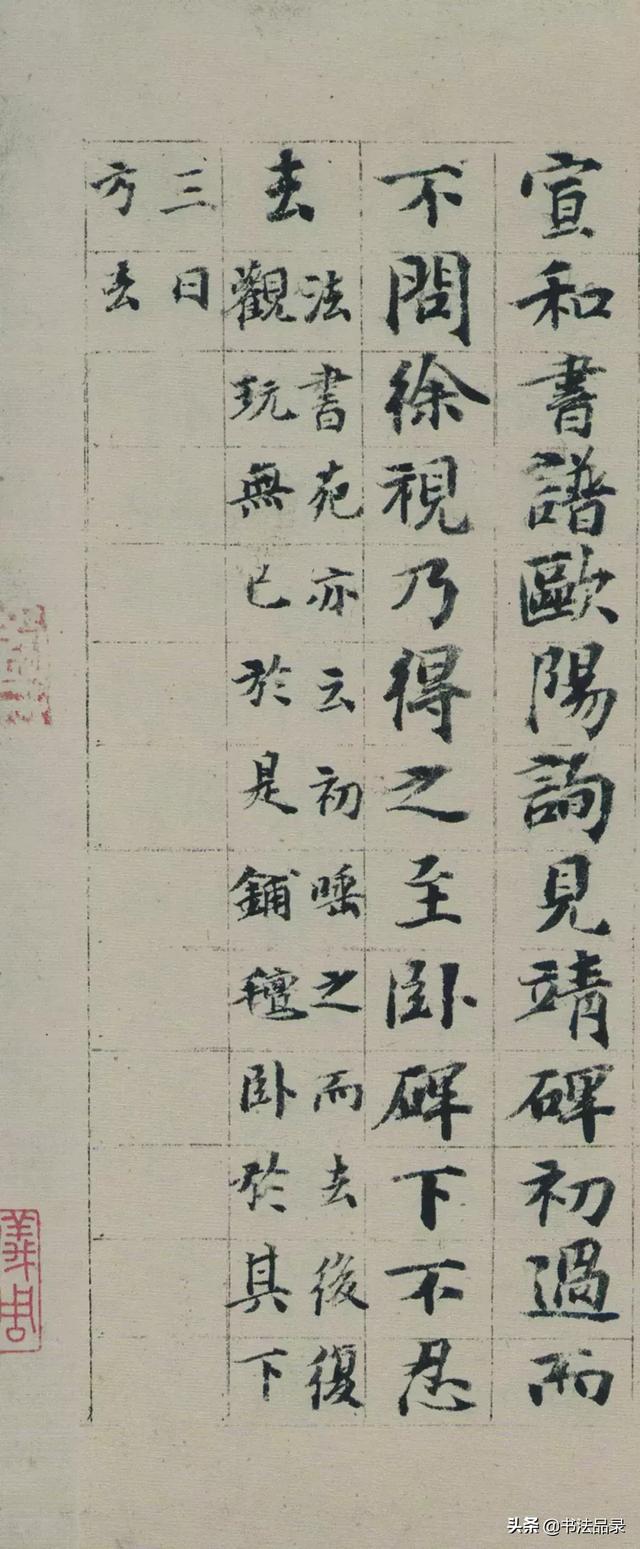 宣和書譜歐陽詢見靖碑初過而
不問徐視乃得之至卧碑下不忍
去
法書苑亦云初唾之而去後復
觀玩無已於是鋪氊卧於其下
三日
方去
头条 @书法品录